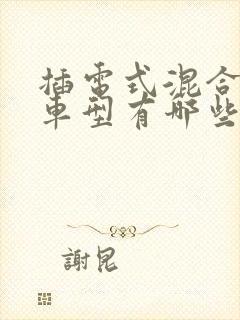 插電式混合
車型有哪些
謝昆